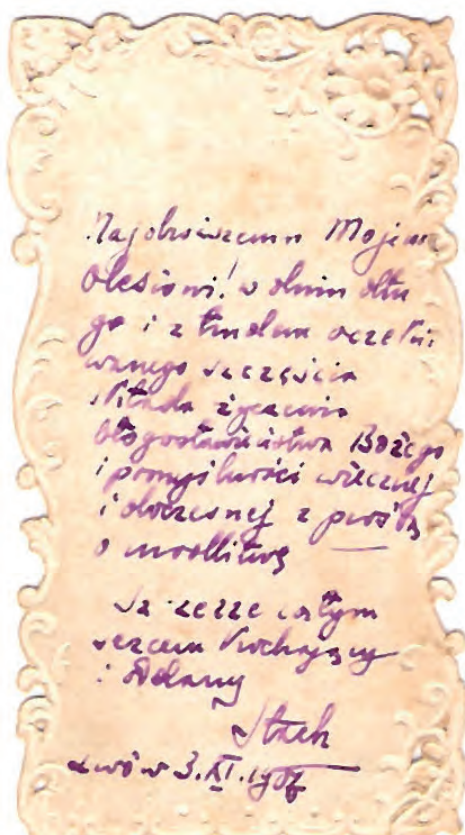 Najdroższemu Mojemu
Olesiowi! w dniu dłu
go i z trudem oczeki
wanego szczęścia
składa życzenia
błogosławieństwa Bożego
i pomyślności wiecznej
i doczesnej z prośbą
o modlitwę
Szczerze całym
sercem kochający
i oddany
Stach
Lwów 3.XI.1907